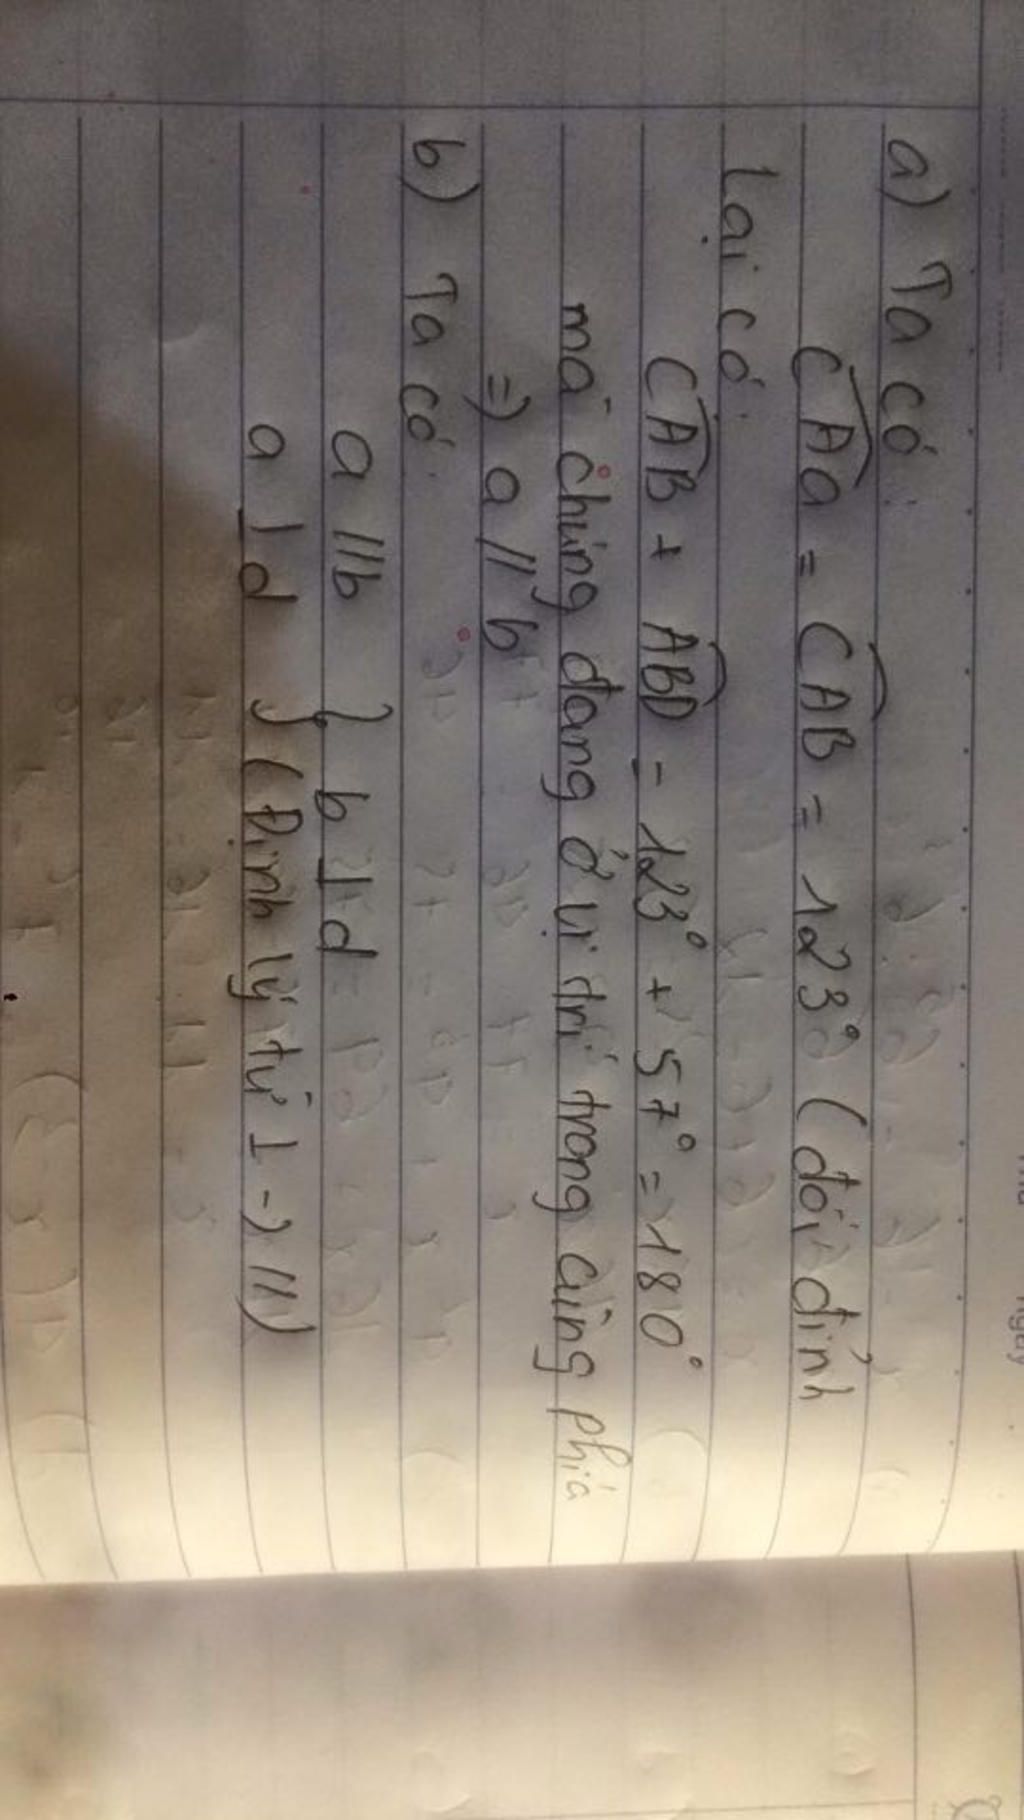 a) Ta có:
CAa = CAB = 123° (đối đỉnh
Lại có:
CAB + ABD = 123° + 57° = 180°
mà chúng đang ở vị trí trong cùng phía
=) a // b
b) Ta có:
a // b } b ⊥ d
a ⊥ d } (Định lý từ ⊥ -) //)
Ngày